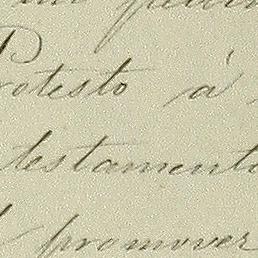 Protesto á
testamento
promover